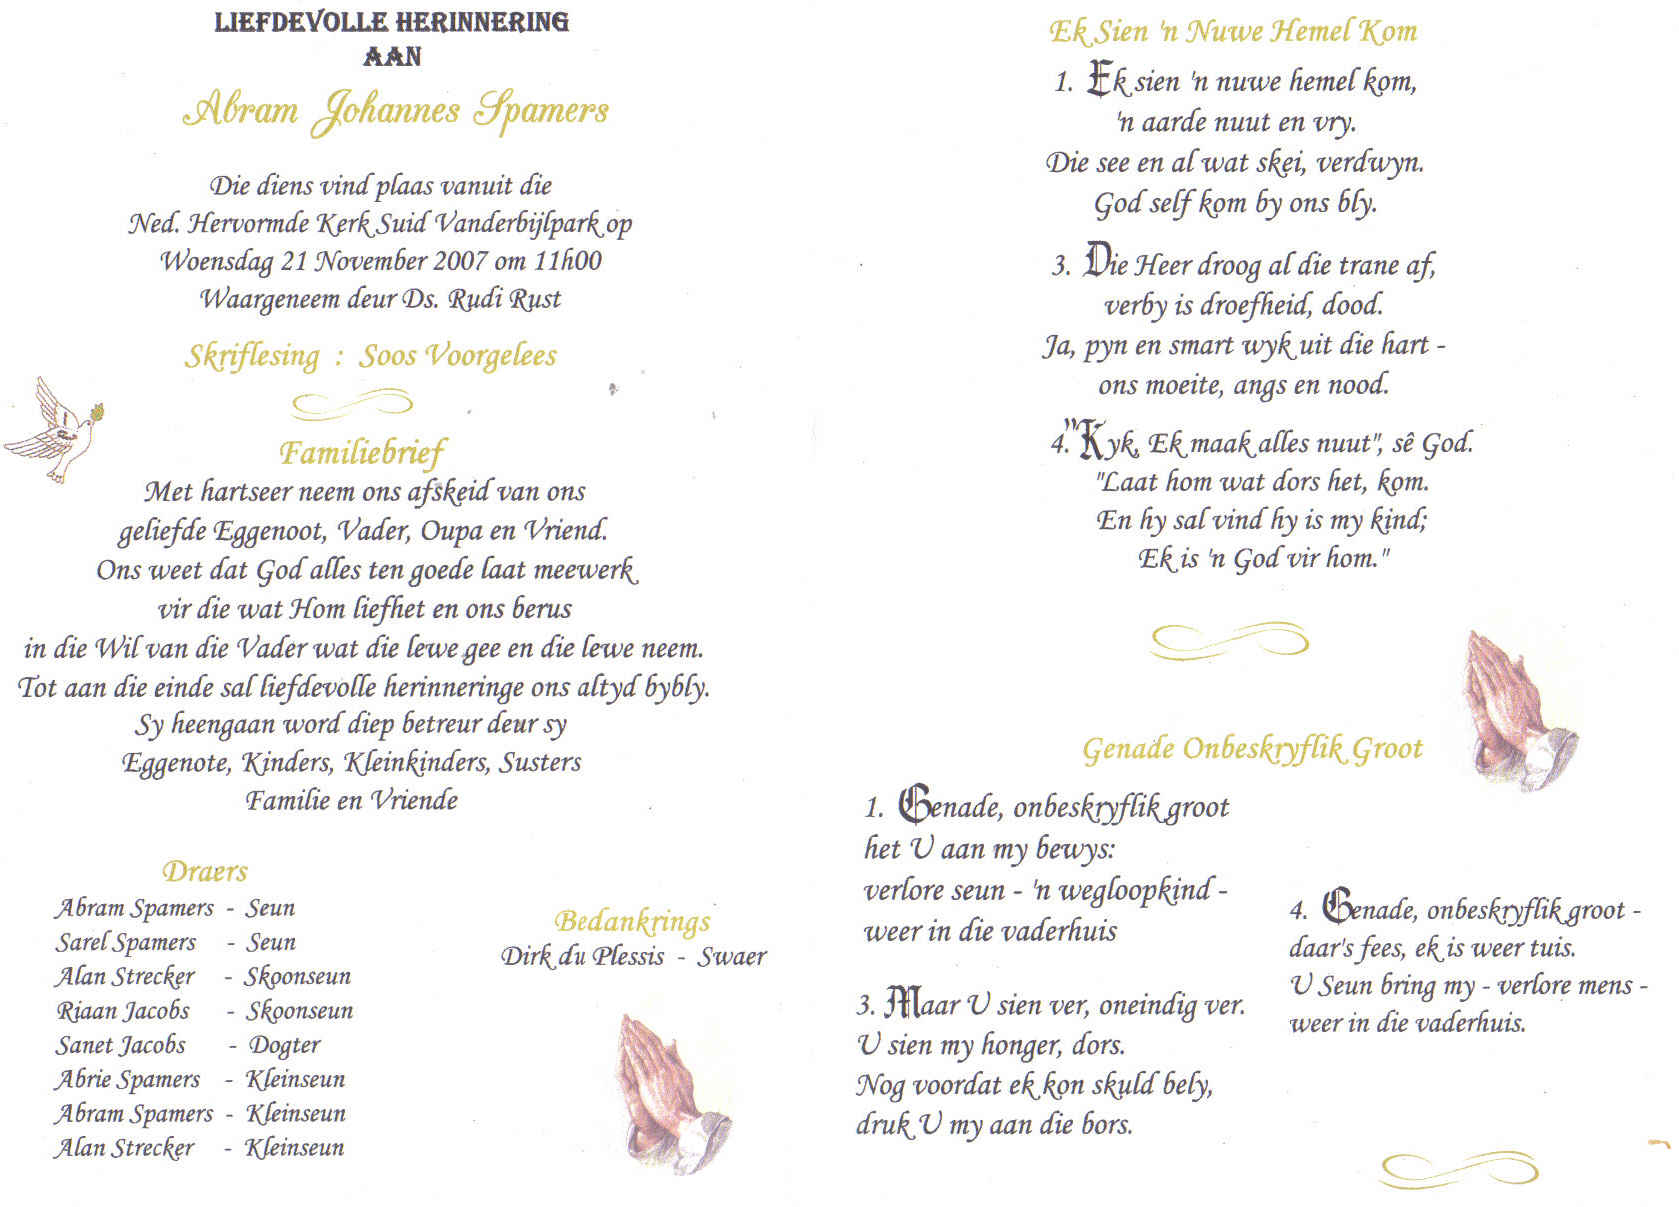 LIEFDEVOLLE HERINNERING
AAN
Abram Johannes Spamers
Die diens vind plaas vanuit die
Ned. Hervormde Kerk Suid Vanderbijlpark op
Woensdag 21 November 2007 om 11h00
Waargeneem deur Ds. Rudi Rust
Skriflesing : Soos Voorgelees
Familiebrief
Met hartseer neem ons afskeid van ons
geliefde Eggenoot, Vader, Oupa en Vriend.
Ons weet dat God alles ten goede laat meewerk
vir die wat Hom liefhet en ons berus
in die Wil van die Vader wat die lewe gee en die lewe neem.
Tot aan die einde sal liefdevolle herinneringe ons altyd bybly.
Sy heengaan word diep betreur deur sy
Eggenote, Kinders, Kleinkinders, Susters
Familie en Vriende
Draers
Abram Spamers - Seun
Sarel Spamers - Seun
Alan Strecker - Skoonseun
Riaan Jacobs - Skoonseun
Sanet Jacobs - Dogter
Abrie Spamers - Kleinseun
Abram Spamers - Kleinseun
Alan Strecker - Kleinseun
Bedankrings
Dirk du Plessis - Swaer
Ek Sien 'n Nuwe Hemel Kom
1. Ek sien 'n nuwe hemel kom,
'n aarde nuut en vry.
Die see en al wat skei, verdwyn.
God self kom by ons bly.
3. Die Heer droog al die trane af,
verby is droefheid, dood.
Ja, pyn en smart wyk uit die hart -
ons moeite, angs en nood.
4. "Kyk, Ek maak alles nuut", sê God.
"Laat hom wat dors het, kom.
En hy sal vind hy is my kind;
Ek is 'n God vir hom."
Genade Onbeskryflik Groot
1. Genade, onbeskryflik groot
het U aan my bewys:
verlore seun - 'n wegloopkind -
weer in die vaderhuis
3. Maar U sien ver, oneindig ver.
U sien my honger, dors.
Nog voordat ek kon skuld bely,
druk U my aan die bors.
4. Genade, onbeskryflik groot -
daar's fees, ek is weer tuis.
U Seun bring my - verlore mens -
weer in die vaderhuis.